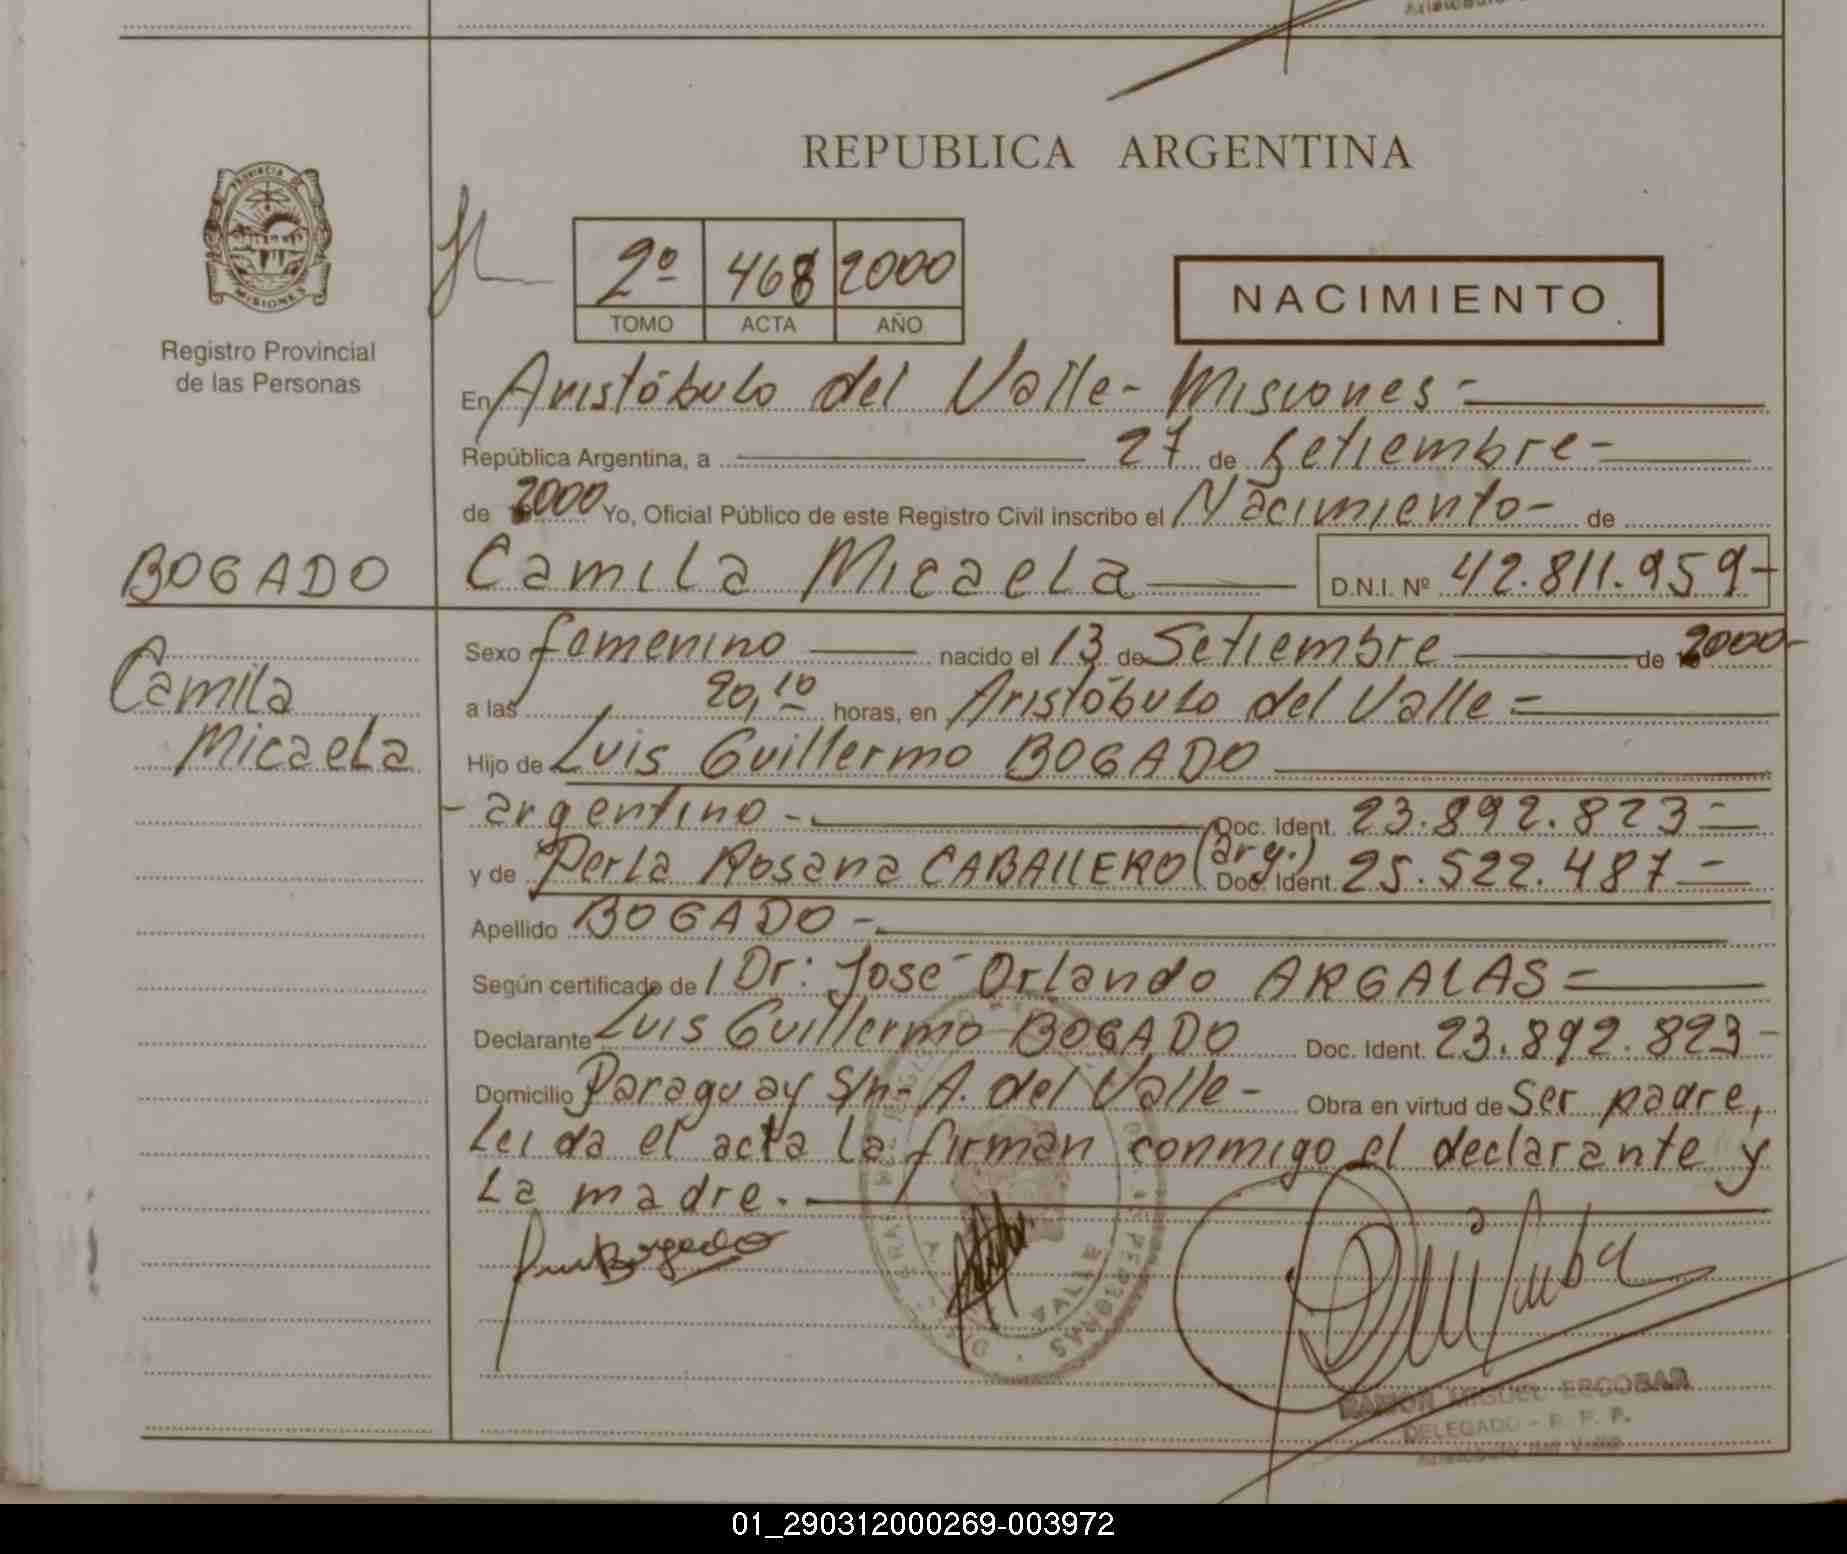 REPUBLICA ARGENTINA
PROVINCIA DE
MISIONES
Registro Provincial
de las Personas
2º 468 2000
TOMO ACTA AÑO
NACIMIENTO
En Aristóbulo del Valle - Misiones -
República Argentina, a 27 de Setiembre -
de 2000 Yo, Oficial Público de este Registro Civil inscribo el Nacimiento - de
BOGADO
Camila Micaela D.N.I. Nº 42.811.959-
Camila
Micaela
Sexo femenino nacido el 13 de Setiembre de 2000-
a las 20,10 horas, en Aristóbulo del Valle =
Hijo de Luis Guillermo BOGADO
- argentino - Doc. Ident. 23.892.823 -
y de Perla Rosana CABALLERO (arg.) Doc. Ident. 25.522.487 -
Apellido BOGADO -
Según certificado de l Dr: José Orlando ARGALAS =
Declarante Luis Guillermo BOGADO Doc. Ident. 23.892.823 -
Domicilio Paraguay S/n - A. del Valle - Obra en virtud de ser padre,
Leida el acta la firman conmigo el declarante y
La madre.
Bogado
RAMON MIGUEL ESCOBAR
DELEGADO - R. P. P.
Aristóbulo del Valle
01_290312000269-003972